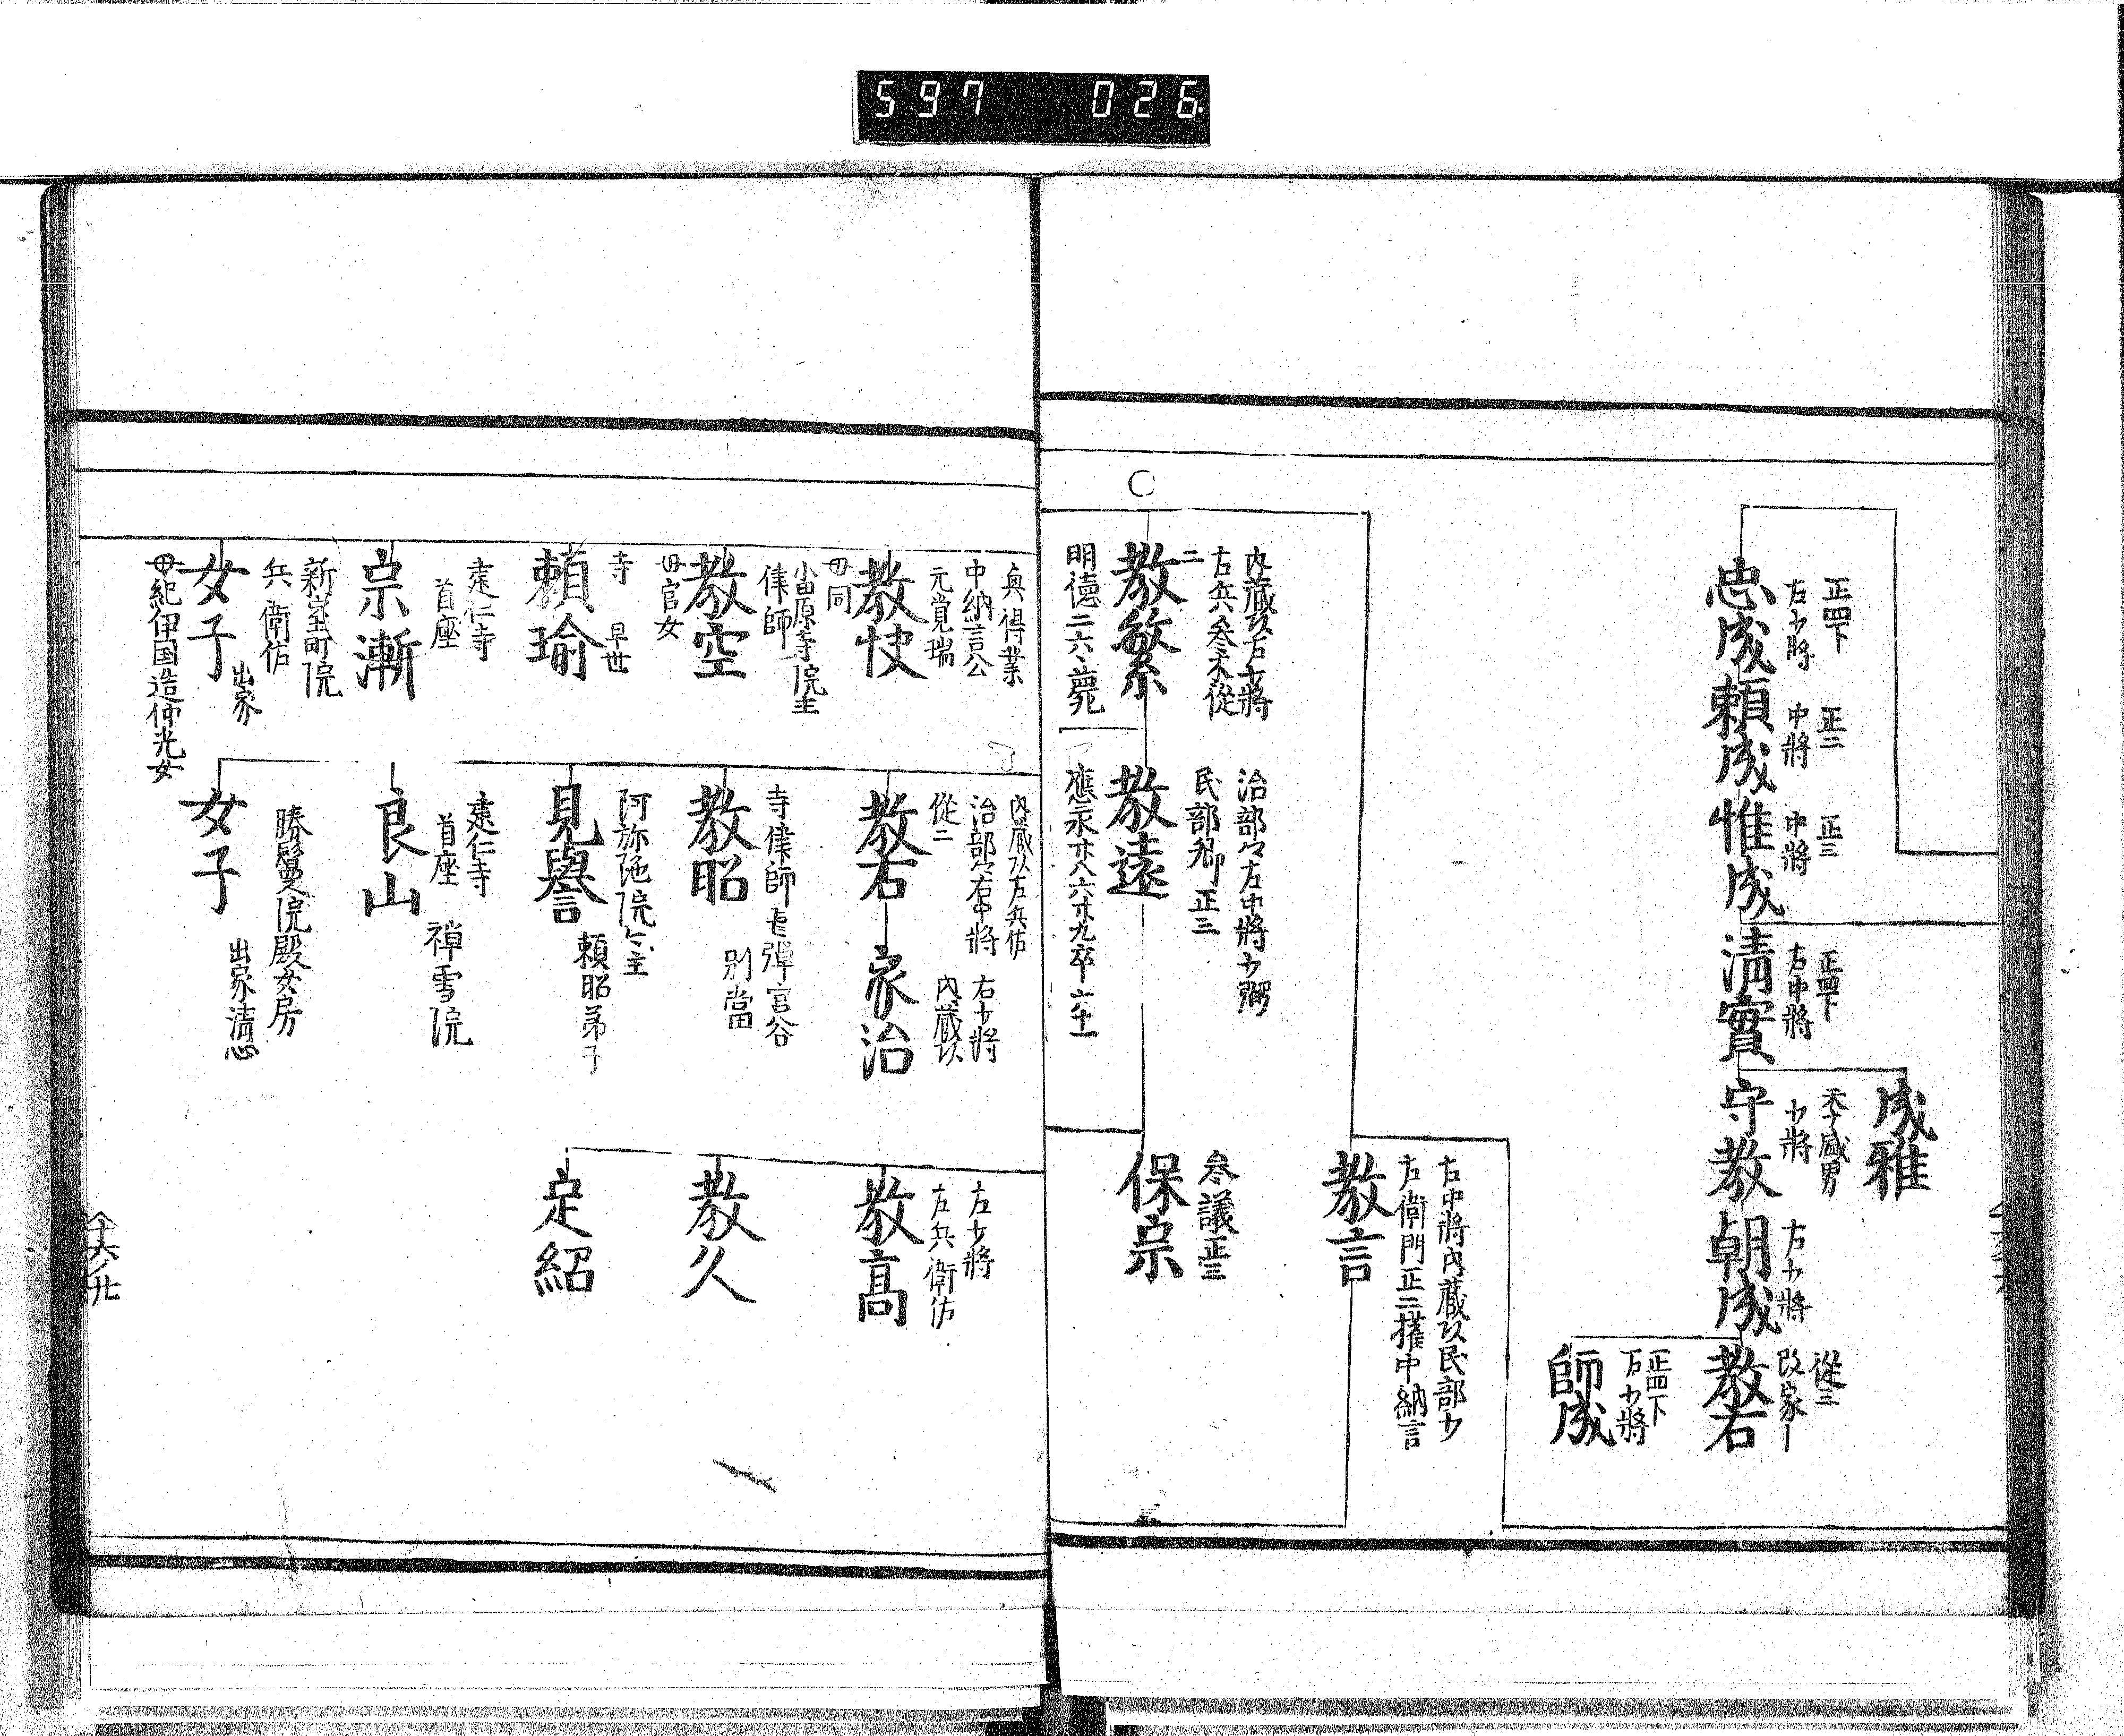 597 026
成雅
正四下
右少將
忠成
正二
中將
頼成
正三
中將
惟成
正四下
右中將
清實
少將
守教
右少將
朝成
從三
改家
教右
正四下
右少將
師成
右中將内蔵頭民部少
左衛門正二權中納言
教言
内蔵頭右少將
右兵衛從
二
教繁
明徳二六薨
治部左中將少弼
民部卿正三
教遠
應永廿八六廿九卒六十一
参議正三
保宗
得業
中納言公
元覚瑞
教快
母同
小田原寺院主
律師
教空
母官女
寺 早世
頼瑜
建仁寺
首座
宗漸
新室町院
兵衛佐
女子
出家
母紀伊国造仲光女
内蔵頭左兵佐
治部右中將
從二
教右
右少將
内蔵頭
家治
寺律師
別當
教昭
阿弥陀院主
頼昭弟子
見譽
建仁寺
首座 禅雪院
良山
勝鬘院殿女房
女子
出家清心
左少將
左兵衛佐
教高
教久
定紹
十六ノ廿